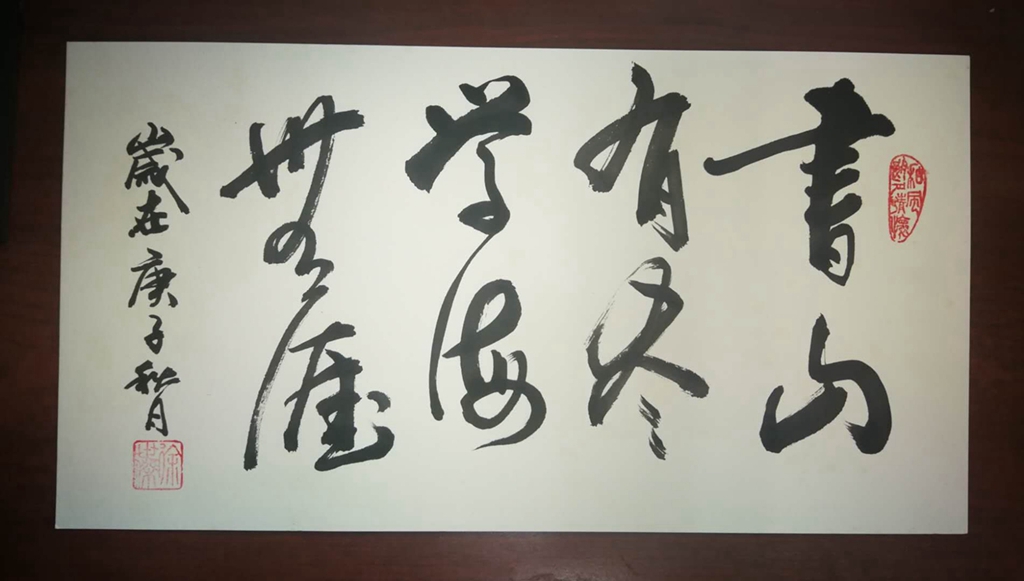 書山
有尽
学海
無涯
歲在庚子秋月